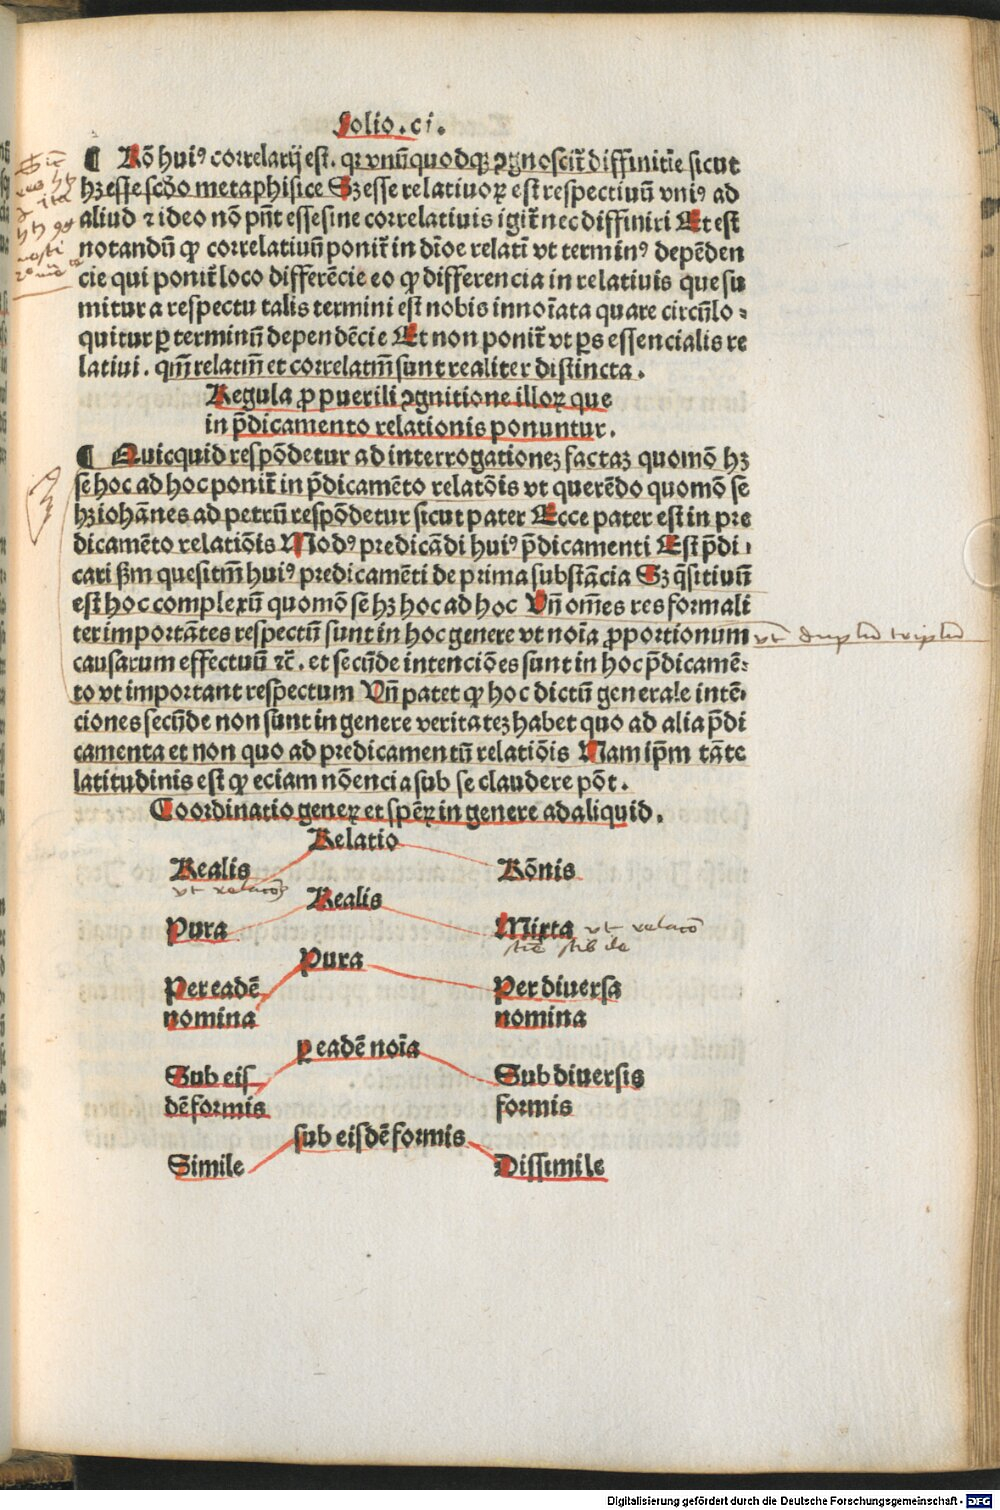 Folio.ci.
¶ Rõ huiꝰ correlarij est. qꝛ vnũquodqꝫ ↄgnoscit̃ diffinitiẽ sicut
hꝫ esse scd̃o metaphisice Sꝫ esse relatiuoꝝ est respectiuũ vniꝰ ad
aliud ⁊ ideo nõ pñt esse sine correlatiuis igit̃ nec diffiniri Et est
notandũ ꝙ correlatiuũ ponit̃ in dĩoe relati vt terminꝰ depẽden
cie qui ponit̃ loco differẽcie eo ꝙ differencia in relatiuis que su
mitur a respectu talis termini est nobis innoĩata quare circũlo⸗
quitur ꝑ terminũ dependẽcie Et non ponit̃ vt ꝑs essencialis re
latiui. qm̃ relatiũ et correlatiũ sunt realiter distincta.
Regula ꝓ puerili ↄgnitione illoꝝ que
in p̃dicamento relationis ponuntur.
¶ Quicquid respõdetur ad interrogationeꝫ factaꝫ quomõ hꝫ
se hoc ad hoc ponit̃ in p̃dicamẽto relatõis vt querẽdo quomõ se
hꝫ iohãnes ad petrũ respõdetur sicut pater Ecce pater est in pre
dicamẽto relatiõis Modꝰ predicãdi huiꝰ p̃dicamenti Est p̃di⸗
cari ẞm quesitiũ huiꝰ predicamẽti de prima substãcia Sꝫ q̃sitiuũ
est hoc complexũ quomõ se hꝫ hoc ad hoc Vñ om̃es res formali
ter importãtes respectũ sunt in hoc genere vt noĩa ꝓportionum
vt duplũ triplũ
causarum effectuũ ⁊c̃. et secũde intenciões sunt in hoc p̃dicamẽ⸗
to vt important respectum Vñ patet ꝙ hoc dictũ generale intẽ⸗
ciones secũde non sunt in genere veritateꝫ habet quo ad alia p̃di
camenta et non quo ad predicamentũ relatiõis Nam ip̃m tãte
latitudinis est ꝙ eciam nõ encia sub se claudere põt.
Coordinatio generꝝ et spẽꝝ in genere adaliquid.
Relatio
Realis Rõnis
vt relacõ
Realis
Pura Mixta vt relacõ
Pura
Per eadẽ Per diuersa
nomina nomina
ꝑ eadẽ noĩa
Sub eis Sub diuersis
dẽ formis formis
sub eisdẽ formis
Simile Dissimile
Digitalisierung gefördert durch die Deutsche Forschungsgemeinschaft - DFG